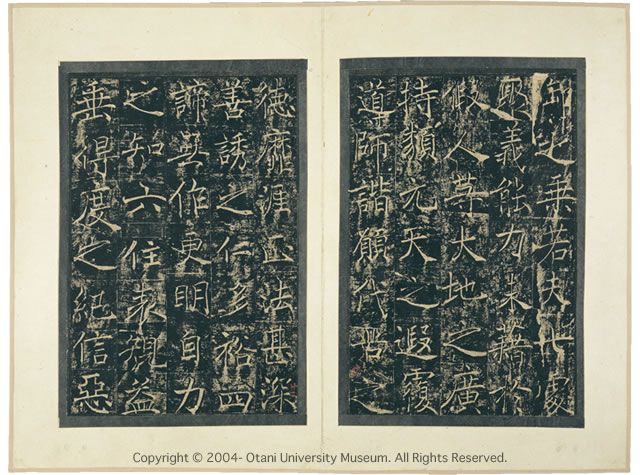 御之乗若夫處
義能力未藉於
假人大地之廣
持類元天之遐覆
道師諧願代之
德靡涯正法甚深
善誘之仁多裕四
諦無作更明自力
之知六住未窺益
垂得度之紀信惡
Copyright © 2004- Otani University Museum. All Rights Reserved.